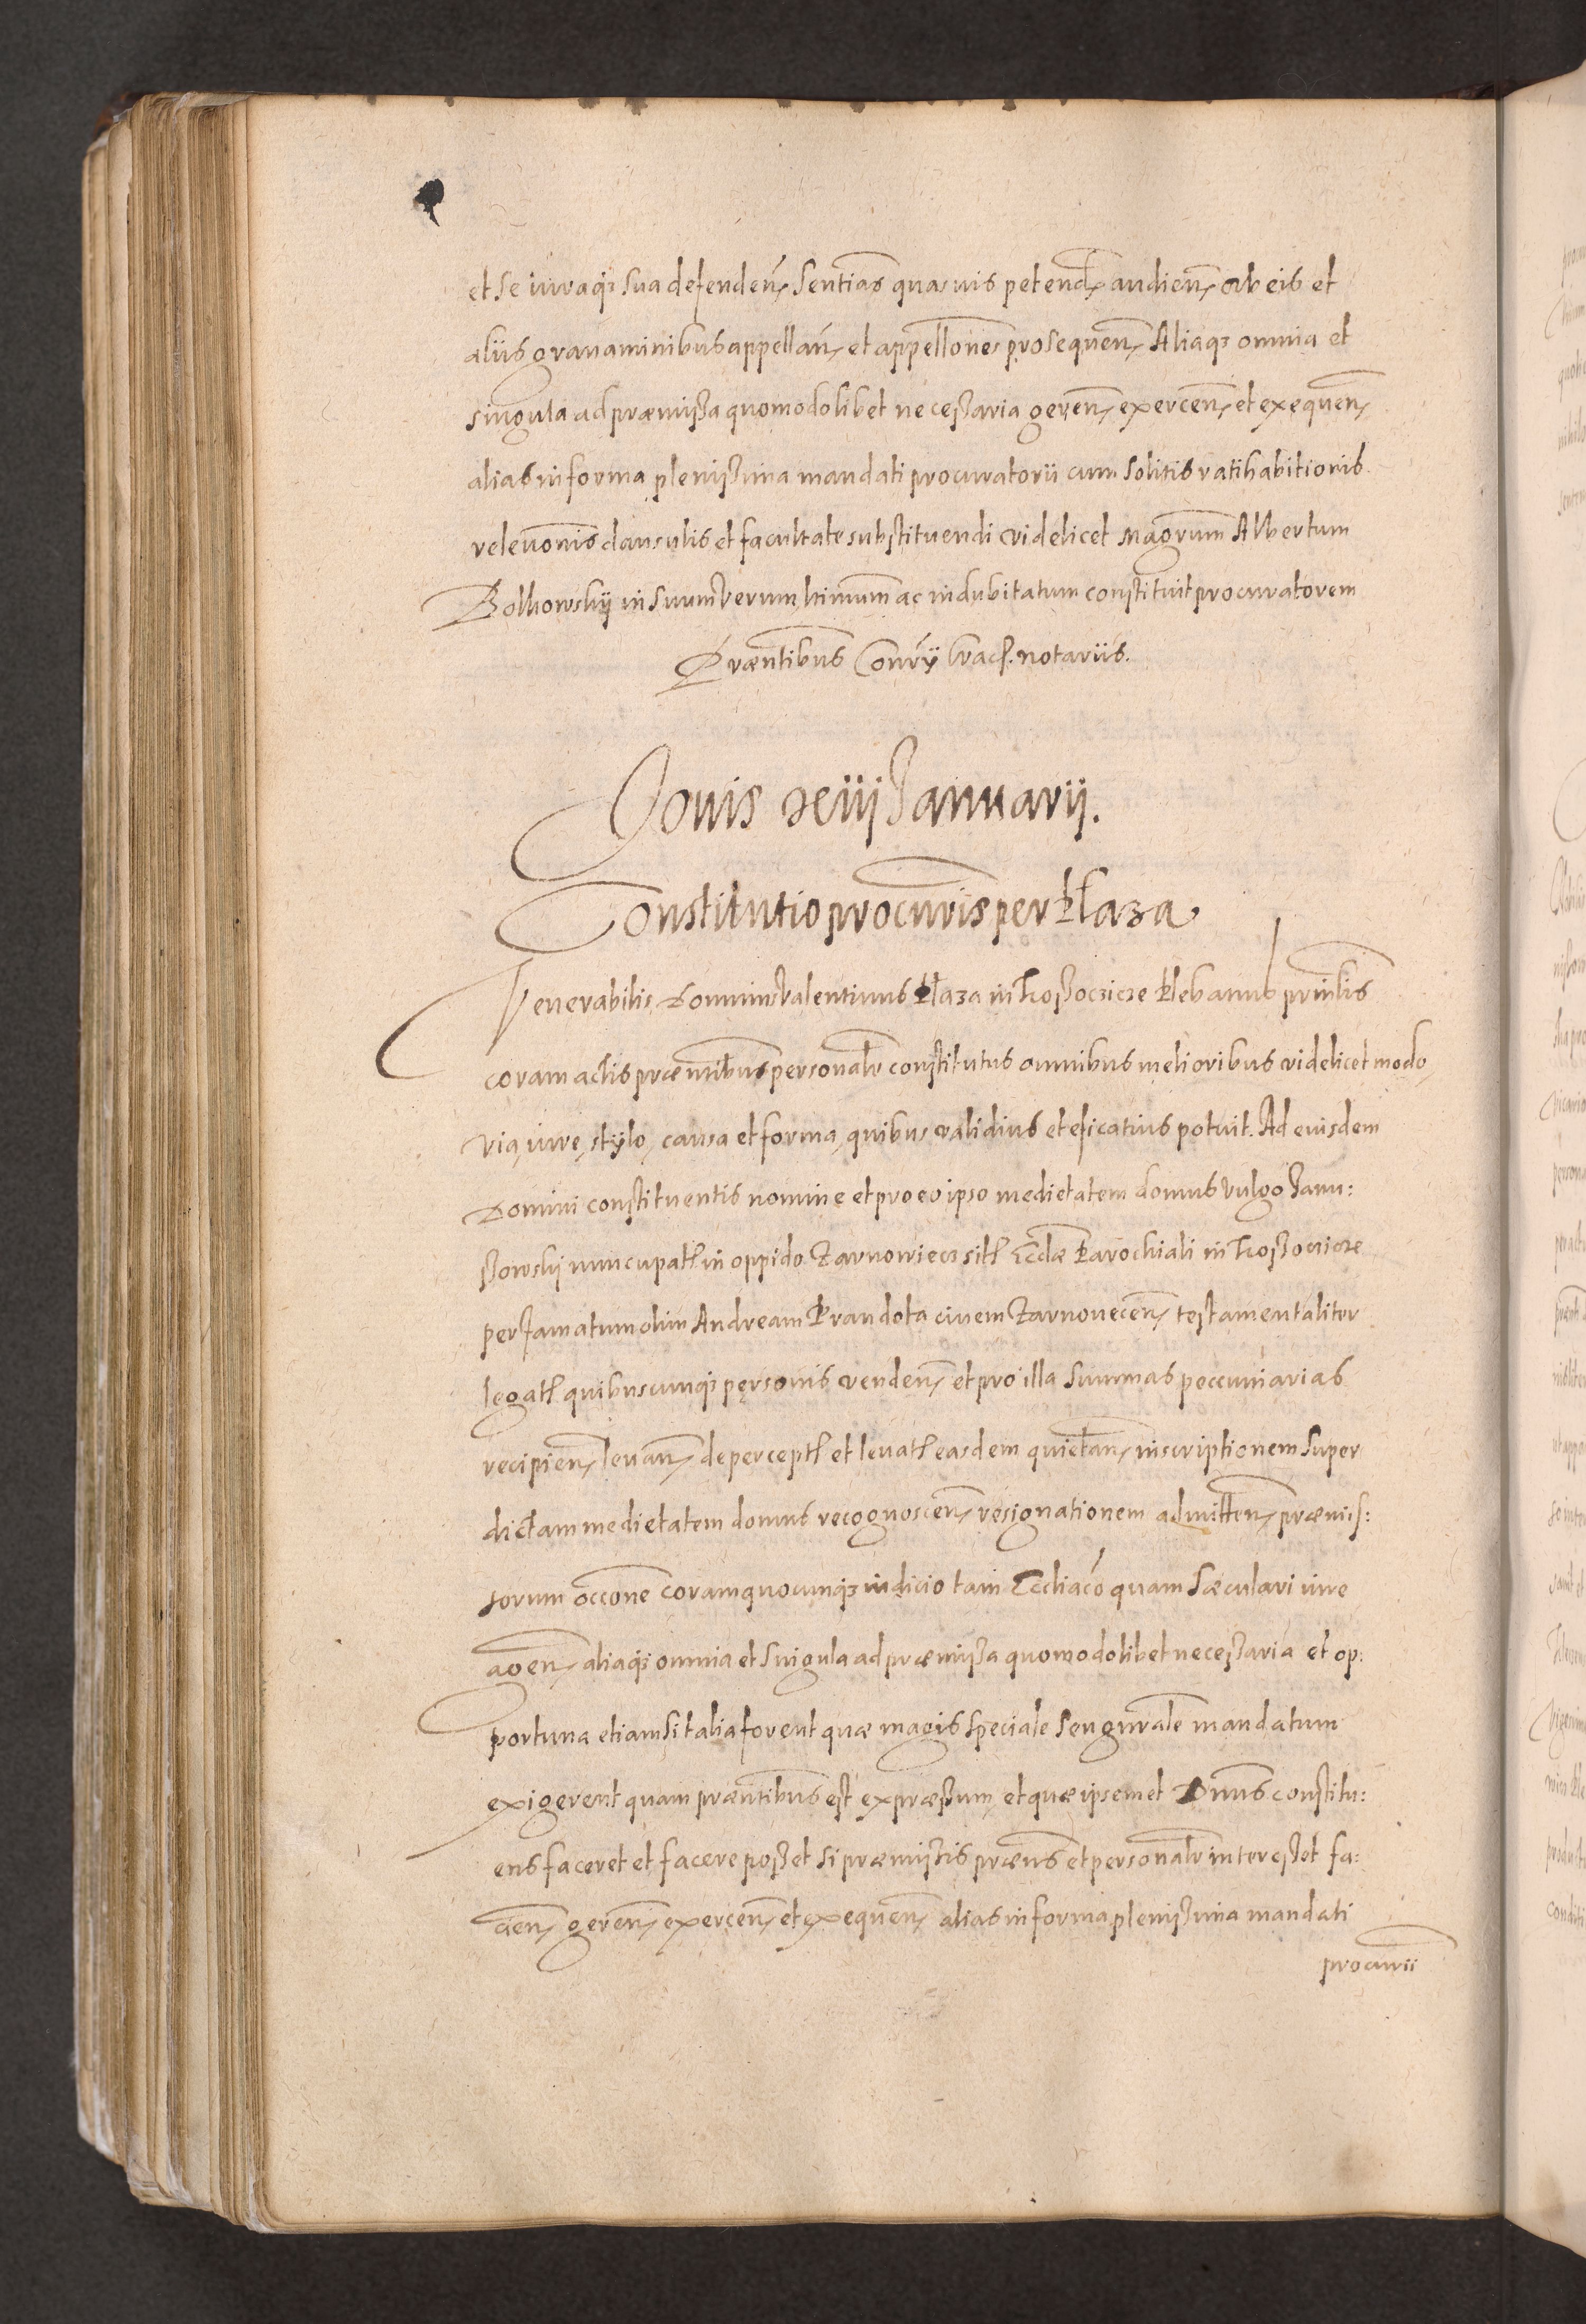 et se iuraq3 sua defenden̄, Sentias quasuis petend̄, audien̄, ab eis et
aliis grauaminibus appellan̄, et appellones prosequen̄, Aliaq3 omnia et
singula ad præmißa quomodolibet neceßaria geren̄, exercen̄, et exequen̄,
alias in forma plenißima mandati procuratorii cum solitis ratihabitionis
releuonis clausulis et facultate substituendi videlicet Magrum Albertum
in suum verum ltimum ac indubitatum constituit procuratorem
Præntibus Conrÿ Crac. notariis.
Jouis xiiij Januarij.
Constitutio procuris per Kłaza
Venerabilis Dominus Valentinus Kłaza in Koßoczicze Plebanus prinlis
coram actis præntibus personalr constitutus omnibus melioribus videlicet modo,
via, iure, stÿlo, causa et forma, quibus validius et eficatius potuit. Ad euisdem
Domini constituentis nomine et pro eo ipso medietatem domus vulgo Janu:
ßowskj nuncupatt in oppido Zarnowiecz sitt Eccłæ Parochiali in Koßoczicze
per famatum olim Andream Prandota ciuem Zarnouecen̄, testamentaliter
legatt quibuscunq3 personis venden̄, et pro illa summas peccuniarias
recipien̄, leuan̄, de perceptt et leuatt easdem quietan̄, inscriptionem super
dictam medietatem domus recognoscen̄, resignationem admitten̄, præmis:
sorum occone coram quocunq3 iudicio tam Eccliaco quam Sæculari iure
agen̄, aliaq3 omnia et singula ad præmißa quomodolibet neceßaria et op:
portuna etiam si talia forent quæ magis speciale seu gnrale mandatum
exigerent quam præntibus est expræßum, et quæ ipsemet Dnus constitu:
ens faceret et facere poßet si præmißis præns et personalr intereßet fa:
cien̄, geren̄, exercen̄, et exequen̄, alias in forma plenißima mandati
procurii